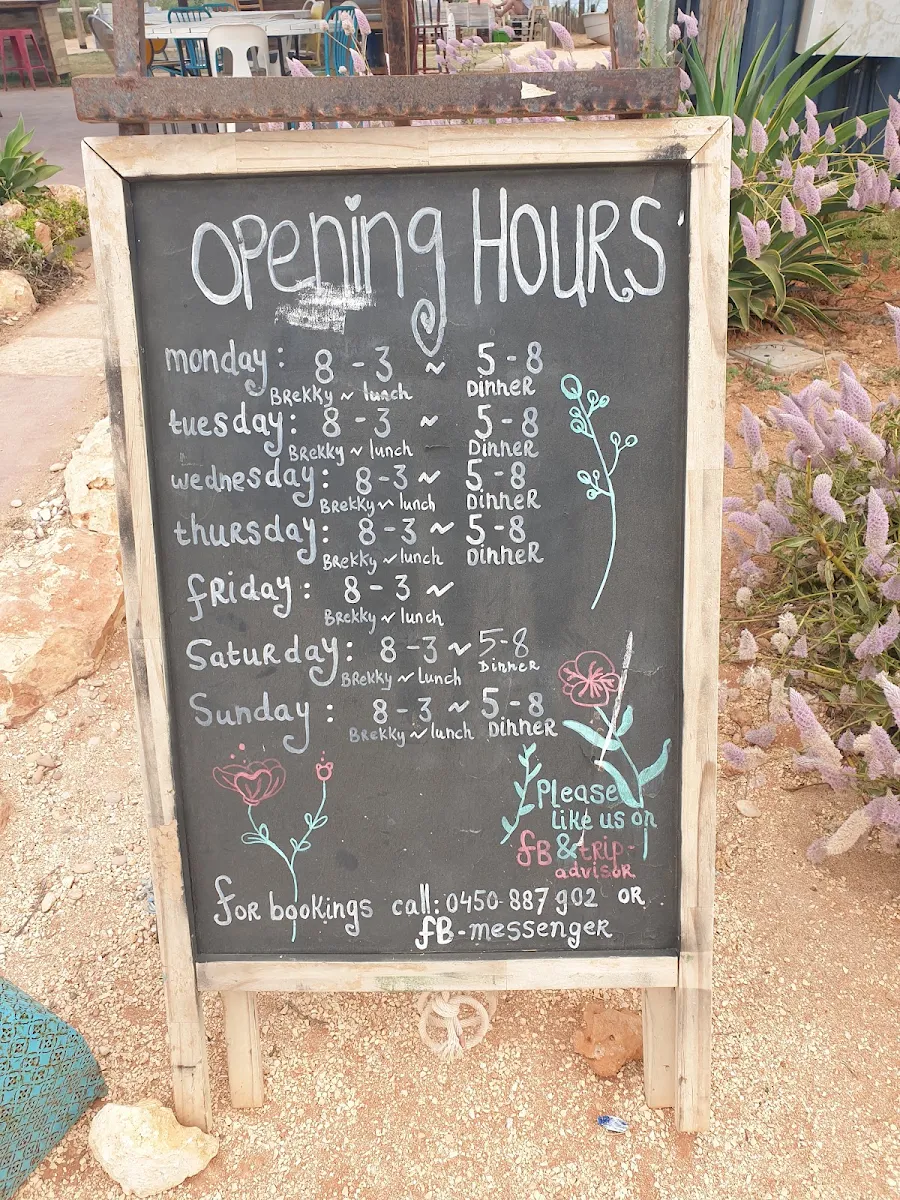 Opening HOURS
monday: 8-3 ~ 5-8
BRekky ~ lunch Dinner
tuesday: 8-3 ~ 5-8
BRekky ~ lunch Dinner
wednesday: 8-3 ~ 5-8
BRekky ~ lunch Dinner
thursday: 8-3 ~ 5-8
BRekky ~ lunch Dinner
friday: 8-3 ~
BRekky ~ lunch
Saturday: 8-3 ~ 5-8
BRekky ~ lunch Dinner
Sunday: 8-3 ~ 5-8
BRekky ~ lunch Dinner
Please
like us on
fB & tRip-
advisoR
for bookings call: 0450 887 902 OR
fB-messenger